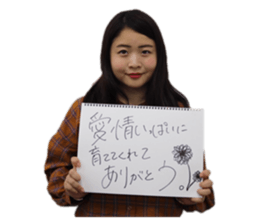 愛情いっぱいに
育ててくれて
ありがとう。